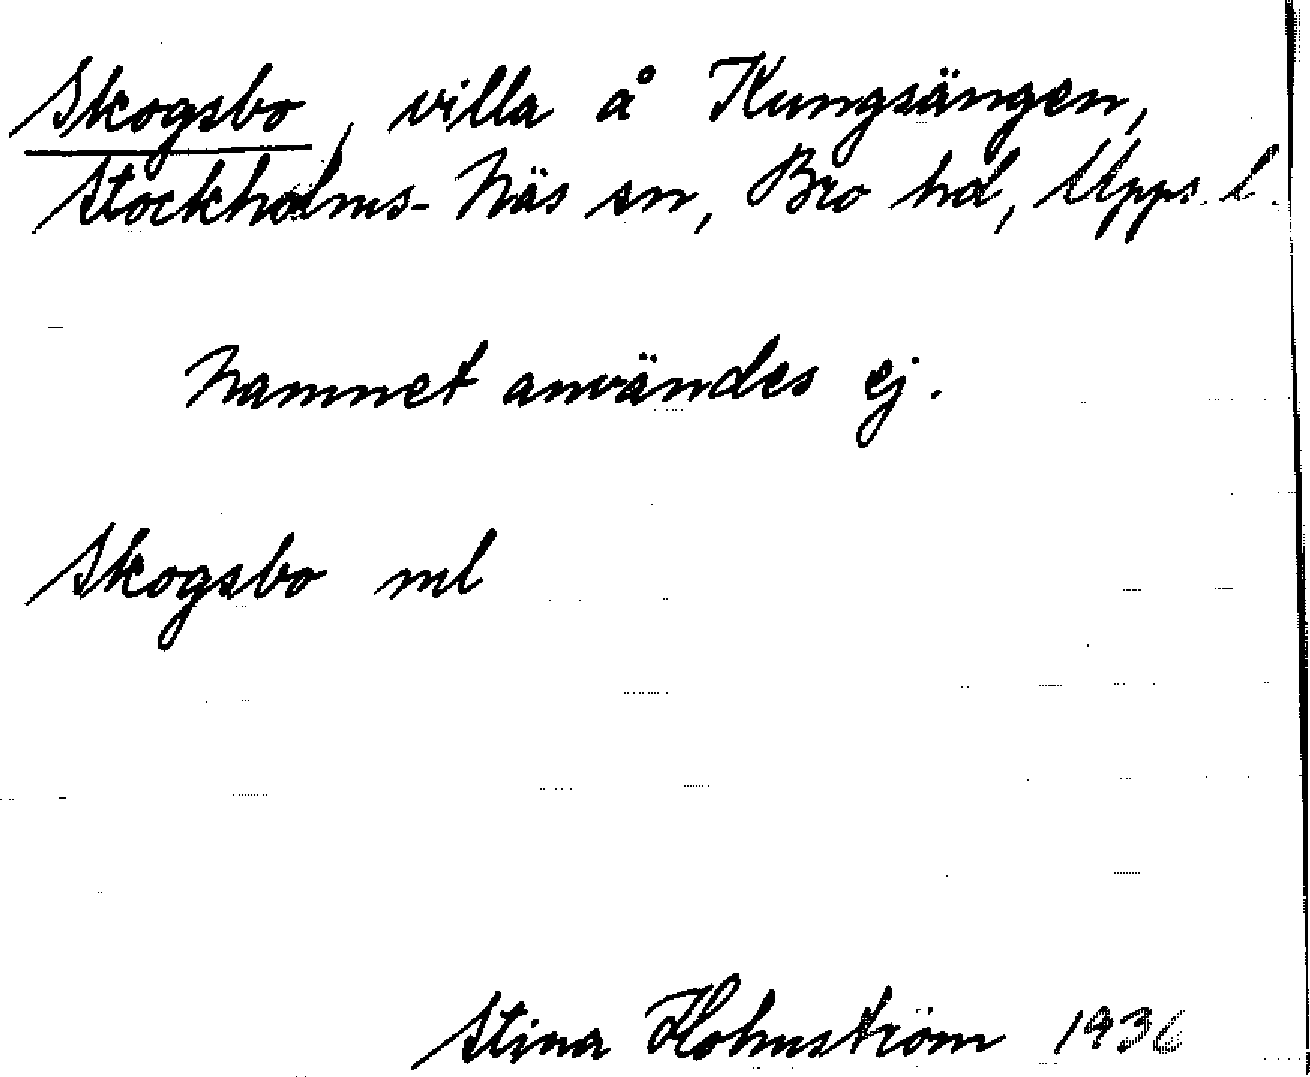 Skogsbo, villa å Kungsängen,
Stockholms-Näs sn, Bro hd, Upps. l.
Namnet användes ej.
Skogsbo ml
Stina Holmström 1936